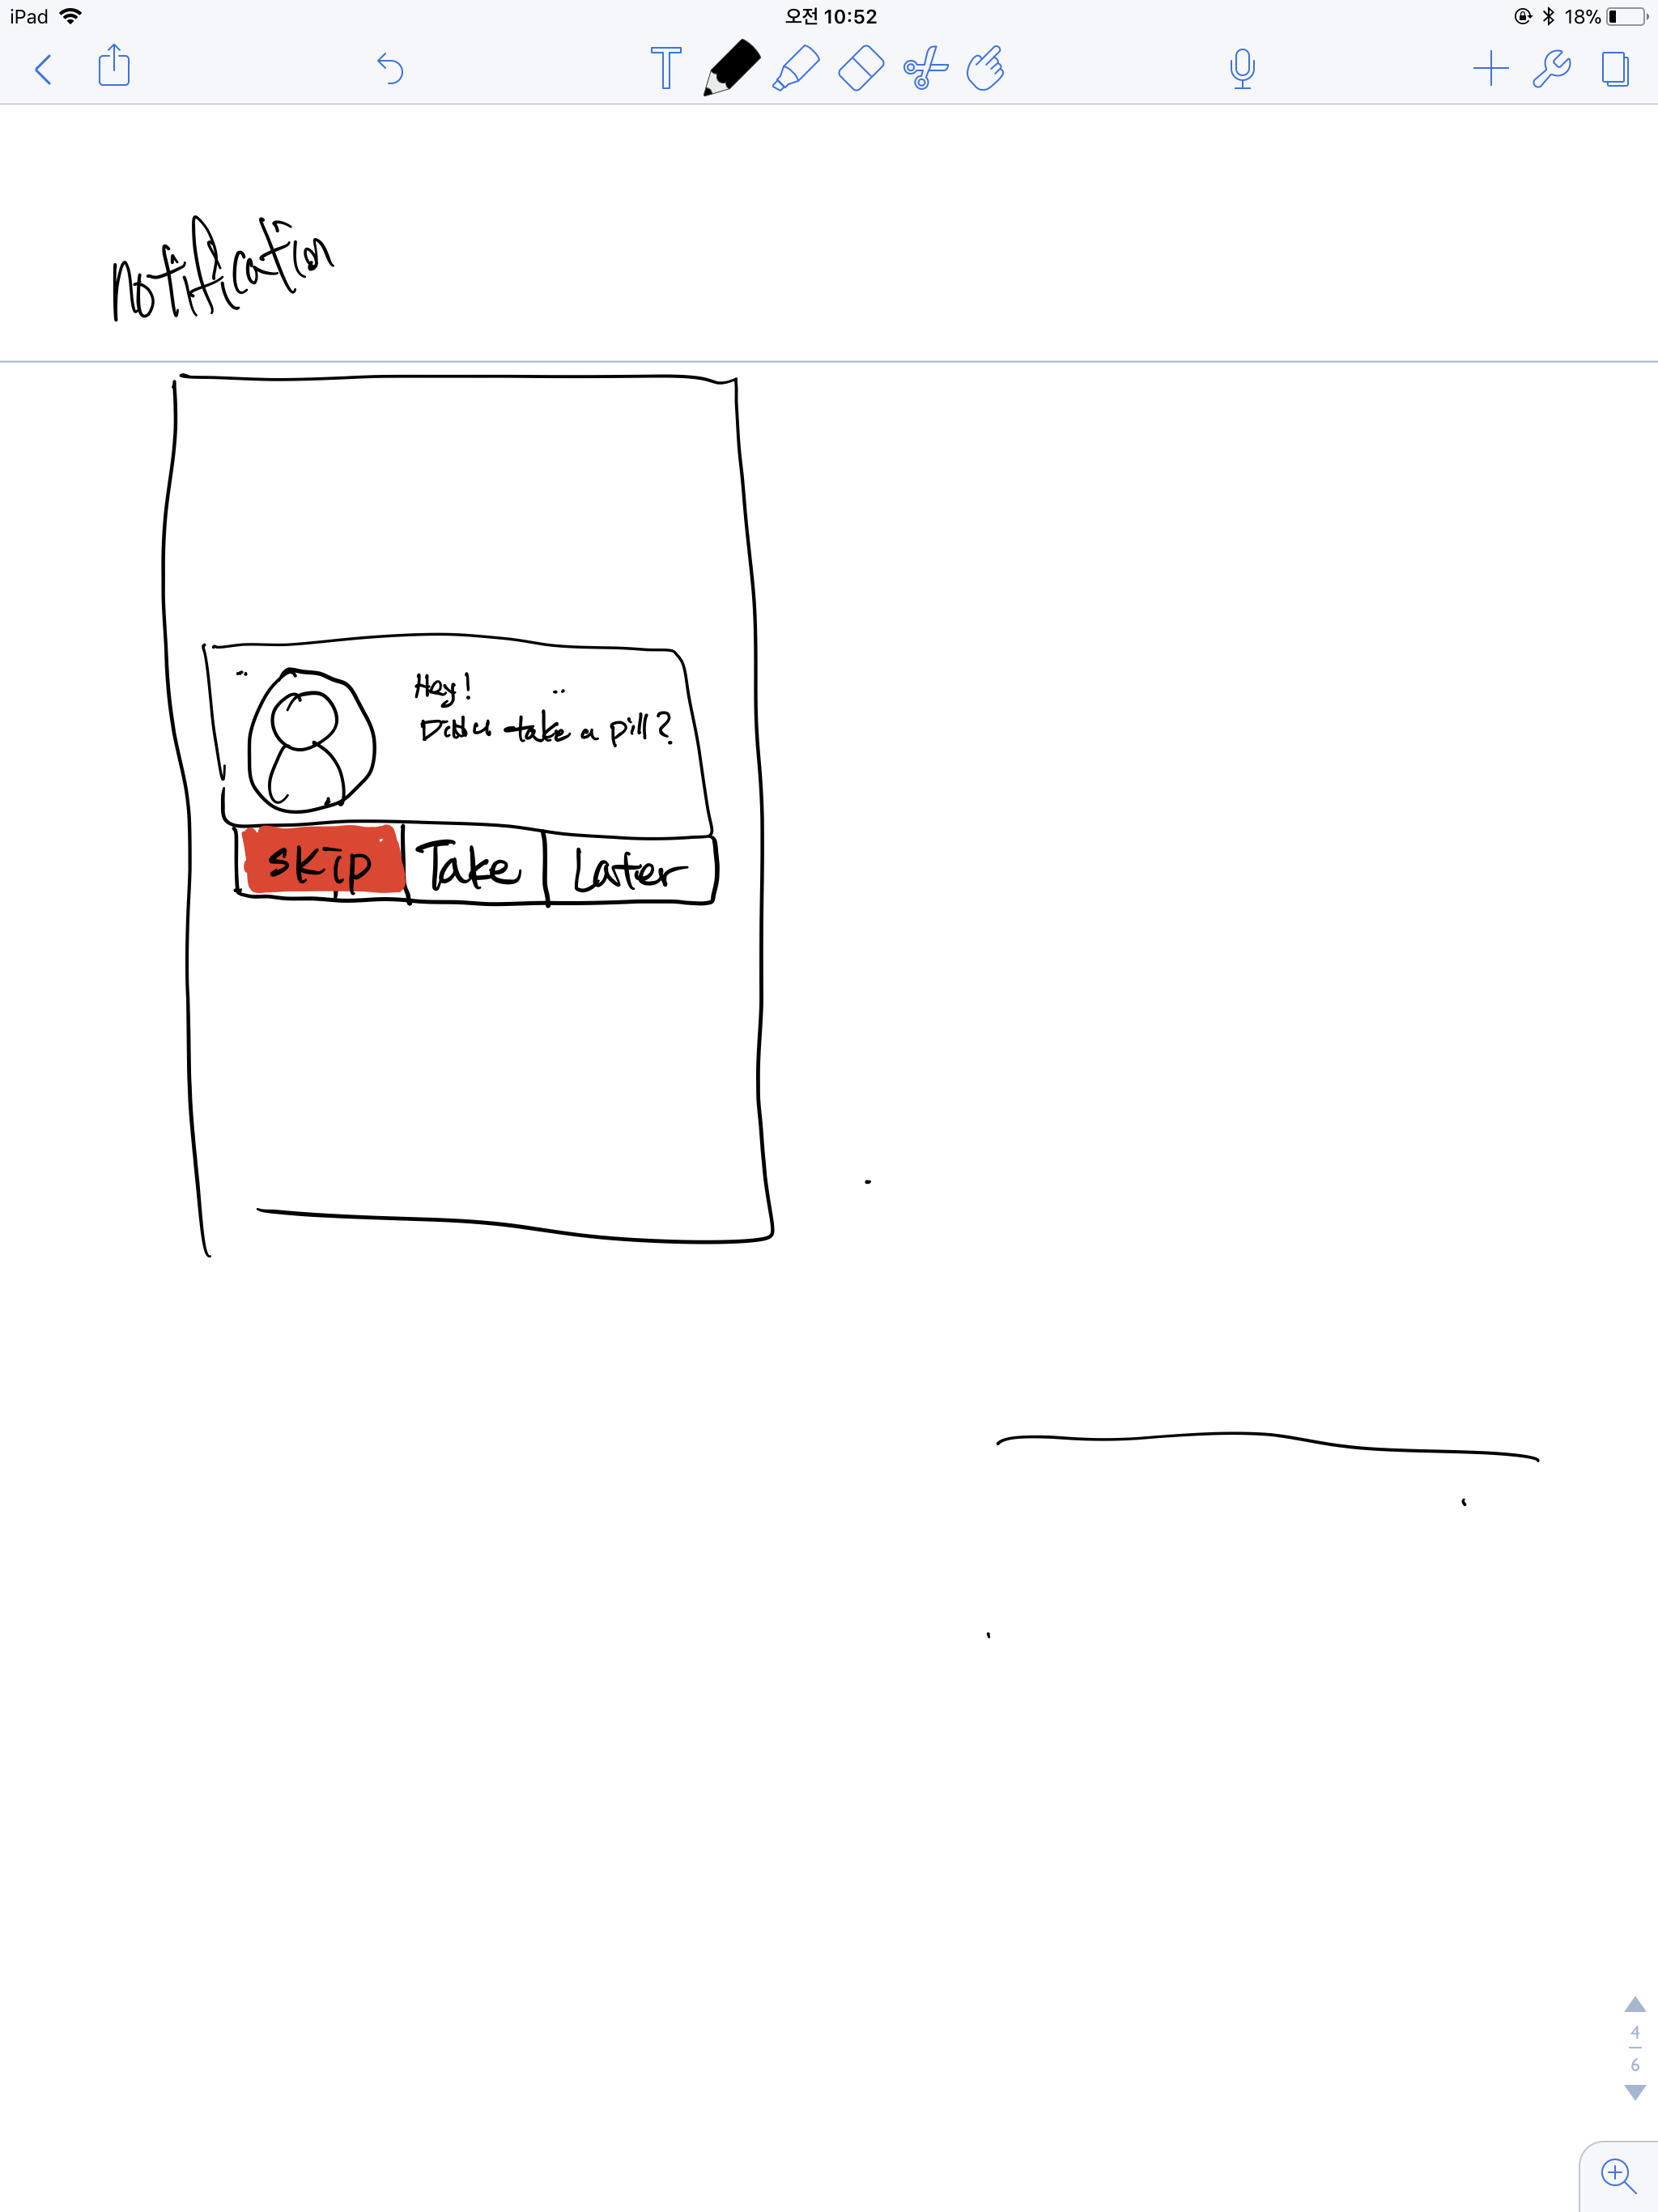 iPad 오전 10:52 18%
T
notification
Hey!
Did u take a pill?
skip Take Later
4
6